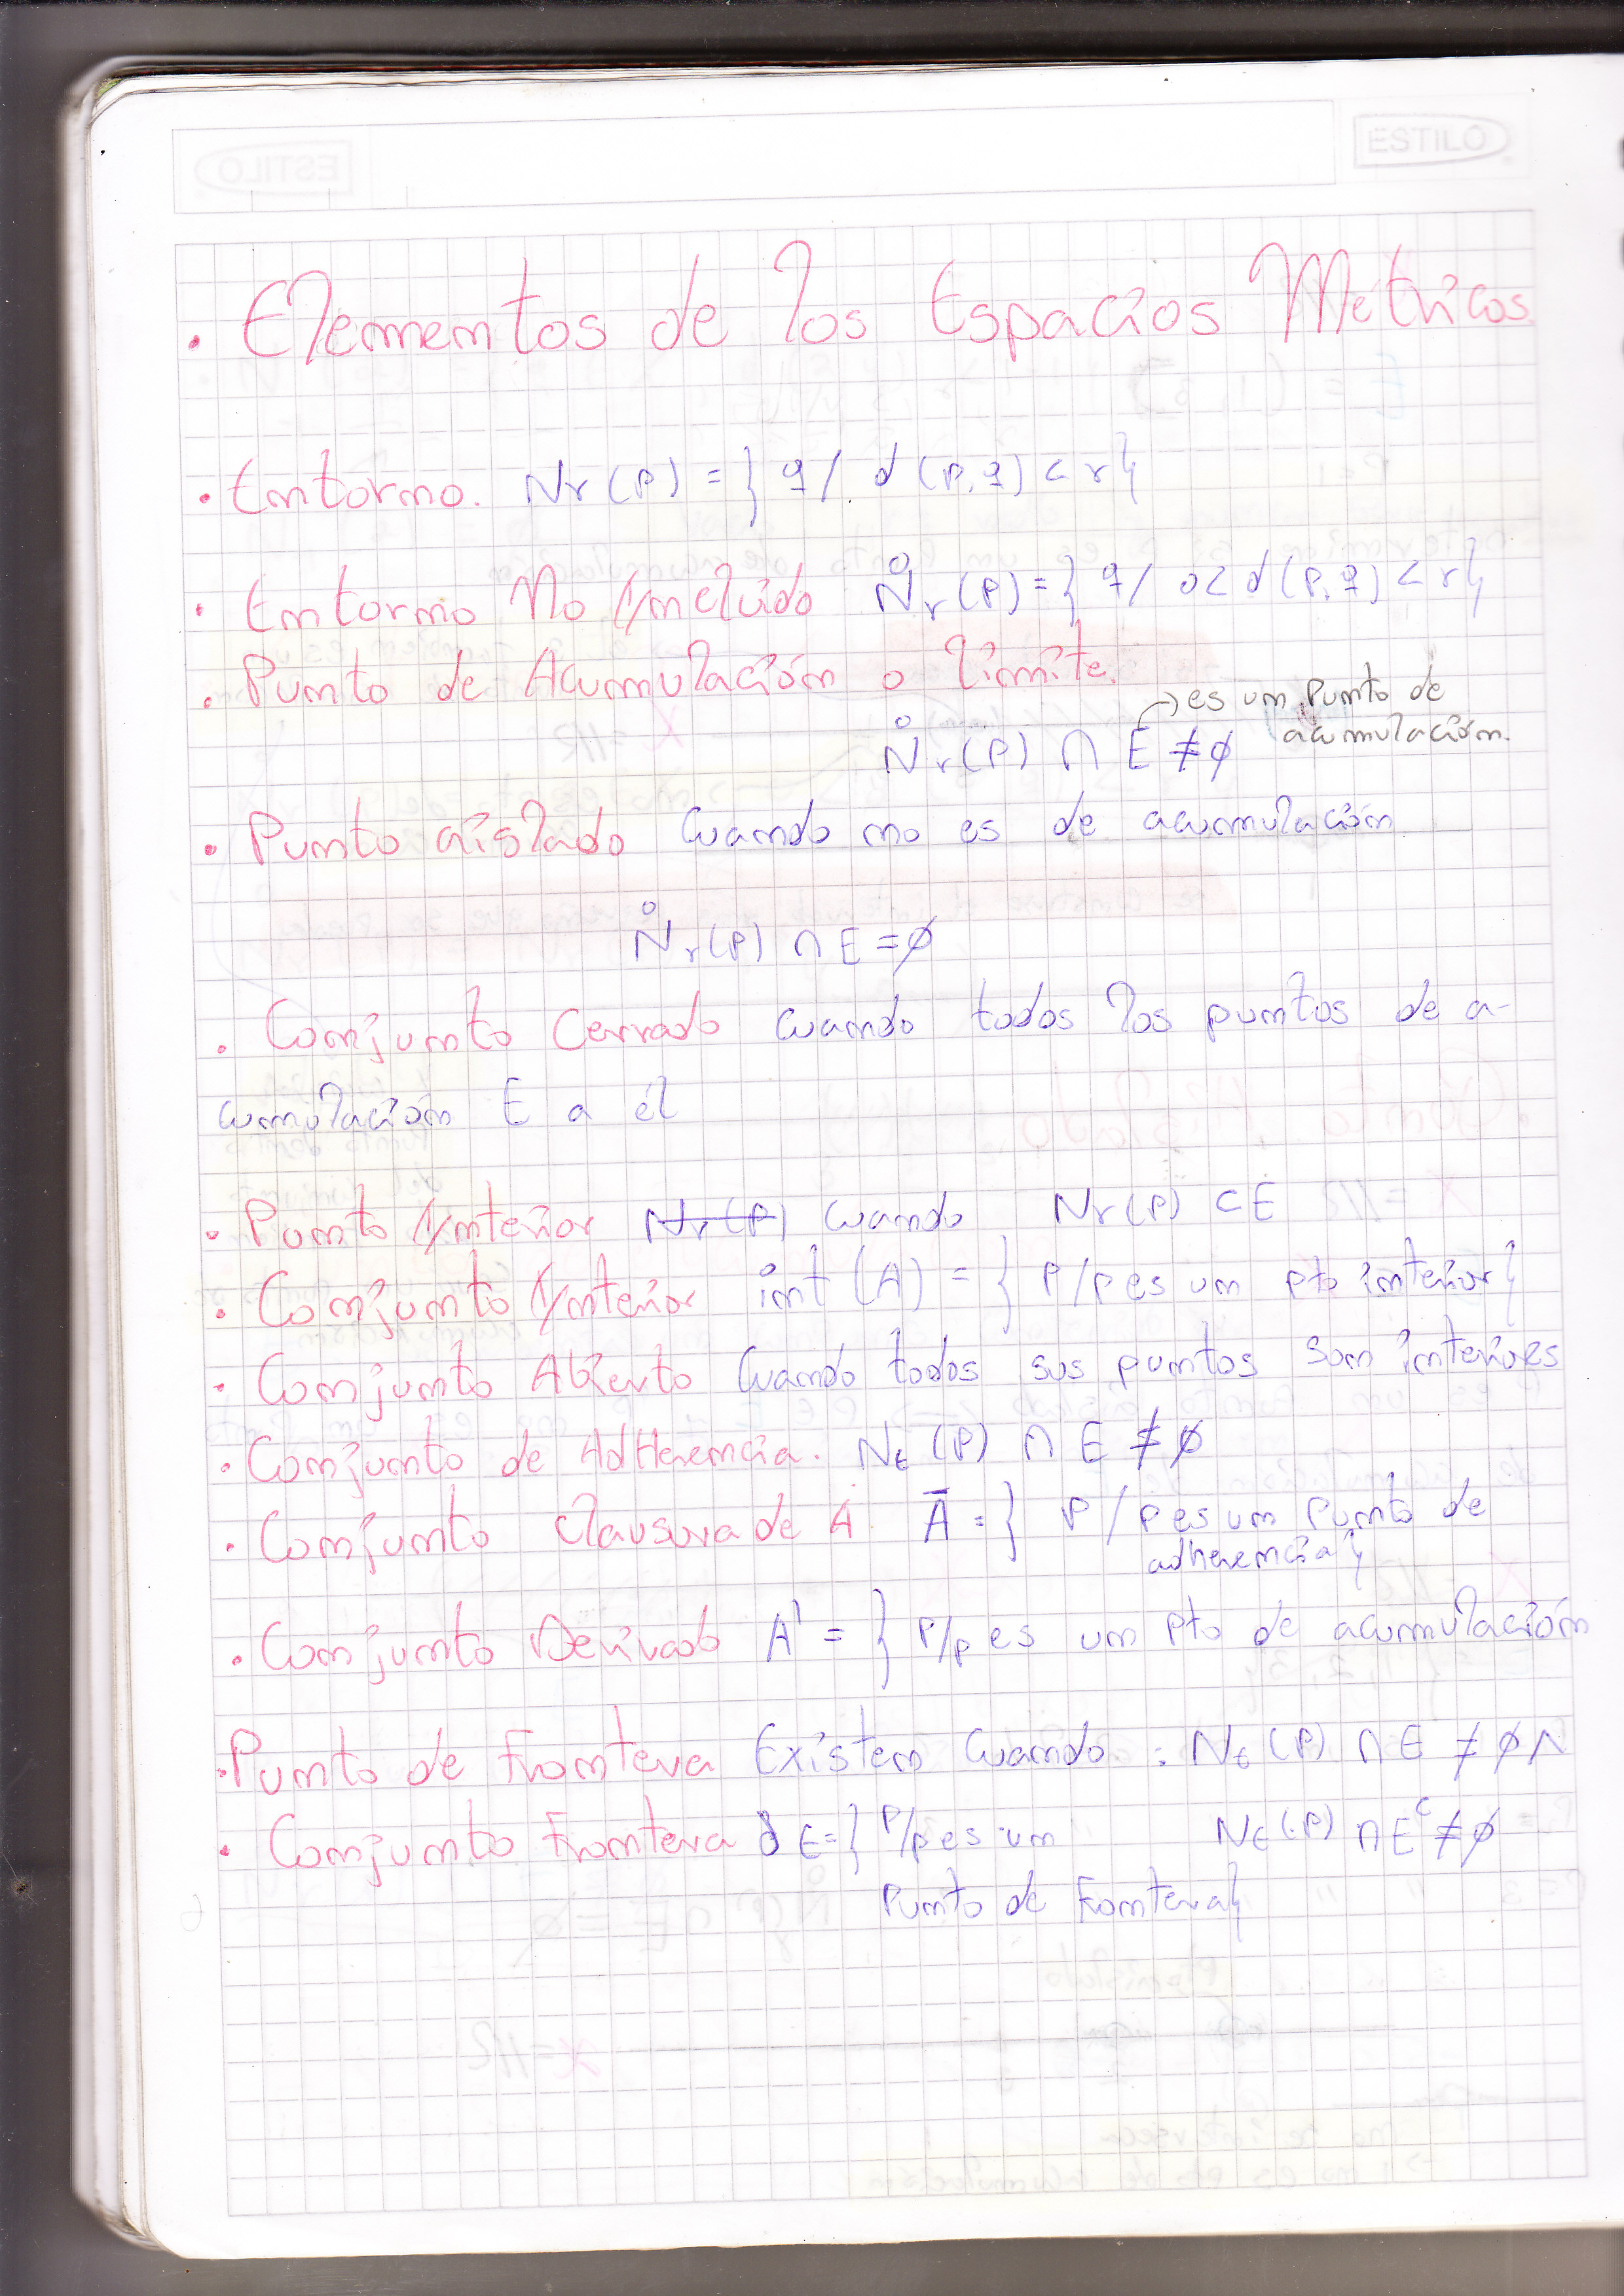 ESTILO
. Elementos de los Espacios Métricos.
. Entorno. Nr(P) = { q / d(P,q) < r}
. Entorno No Incluido N̊r(P) = { q / 0< d(P,q) < r}
. Punto de Acumulación o límite.
→ es un punto de
acumulación.
N̊r(P) ∩ E ≠ ∅
. Punto aislado cuando no es de acumulación
N̊r(P) ∩ E = ∅
. Conjunto Cerrado cuando todos los puntos de a-
cumulación E a él
. Punto Interior Nr(P) cuando Nr(P) ⊂ E
. Conjunto Interior int (A) = { P/p es un pto interior}
. Conjunto Abierto cuando todos sus puntos son interiores
. Conjunto de AdHerencia. Nε(P) ∩ E ≠ ∅
. Conjunto Clausura de A Ā = { P / p es un punto de
adherencia}
. Conjunto Derivado A' = { P/p es un pto de acumulación
. Punto de Frontera Existen cuando : Nε(P) ∩ E ≠ ∅ ∧
. Conjunto Frontera ∂E = { P/p es un Nε(P) ∩ Eᶜ ≠ ∅
Punto de Frontera}